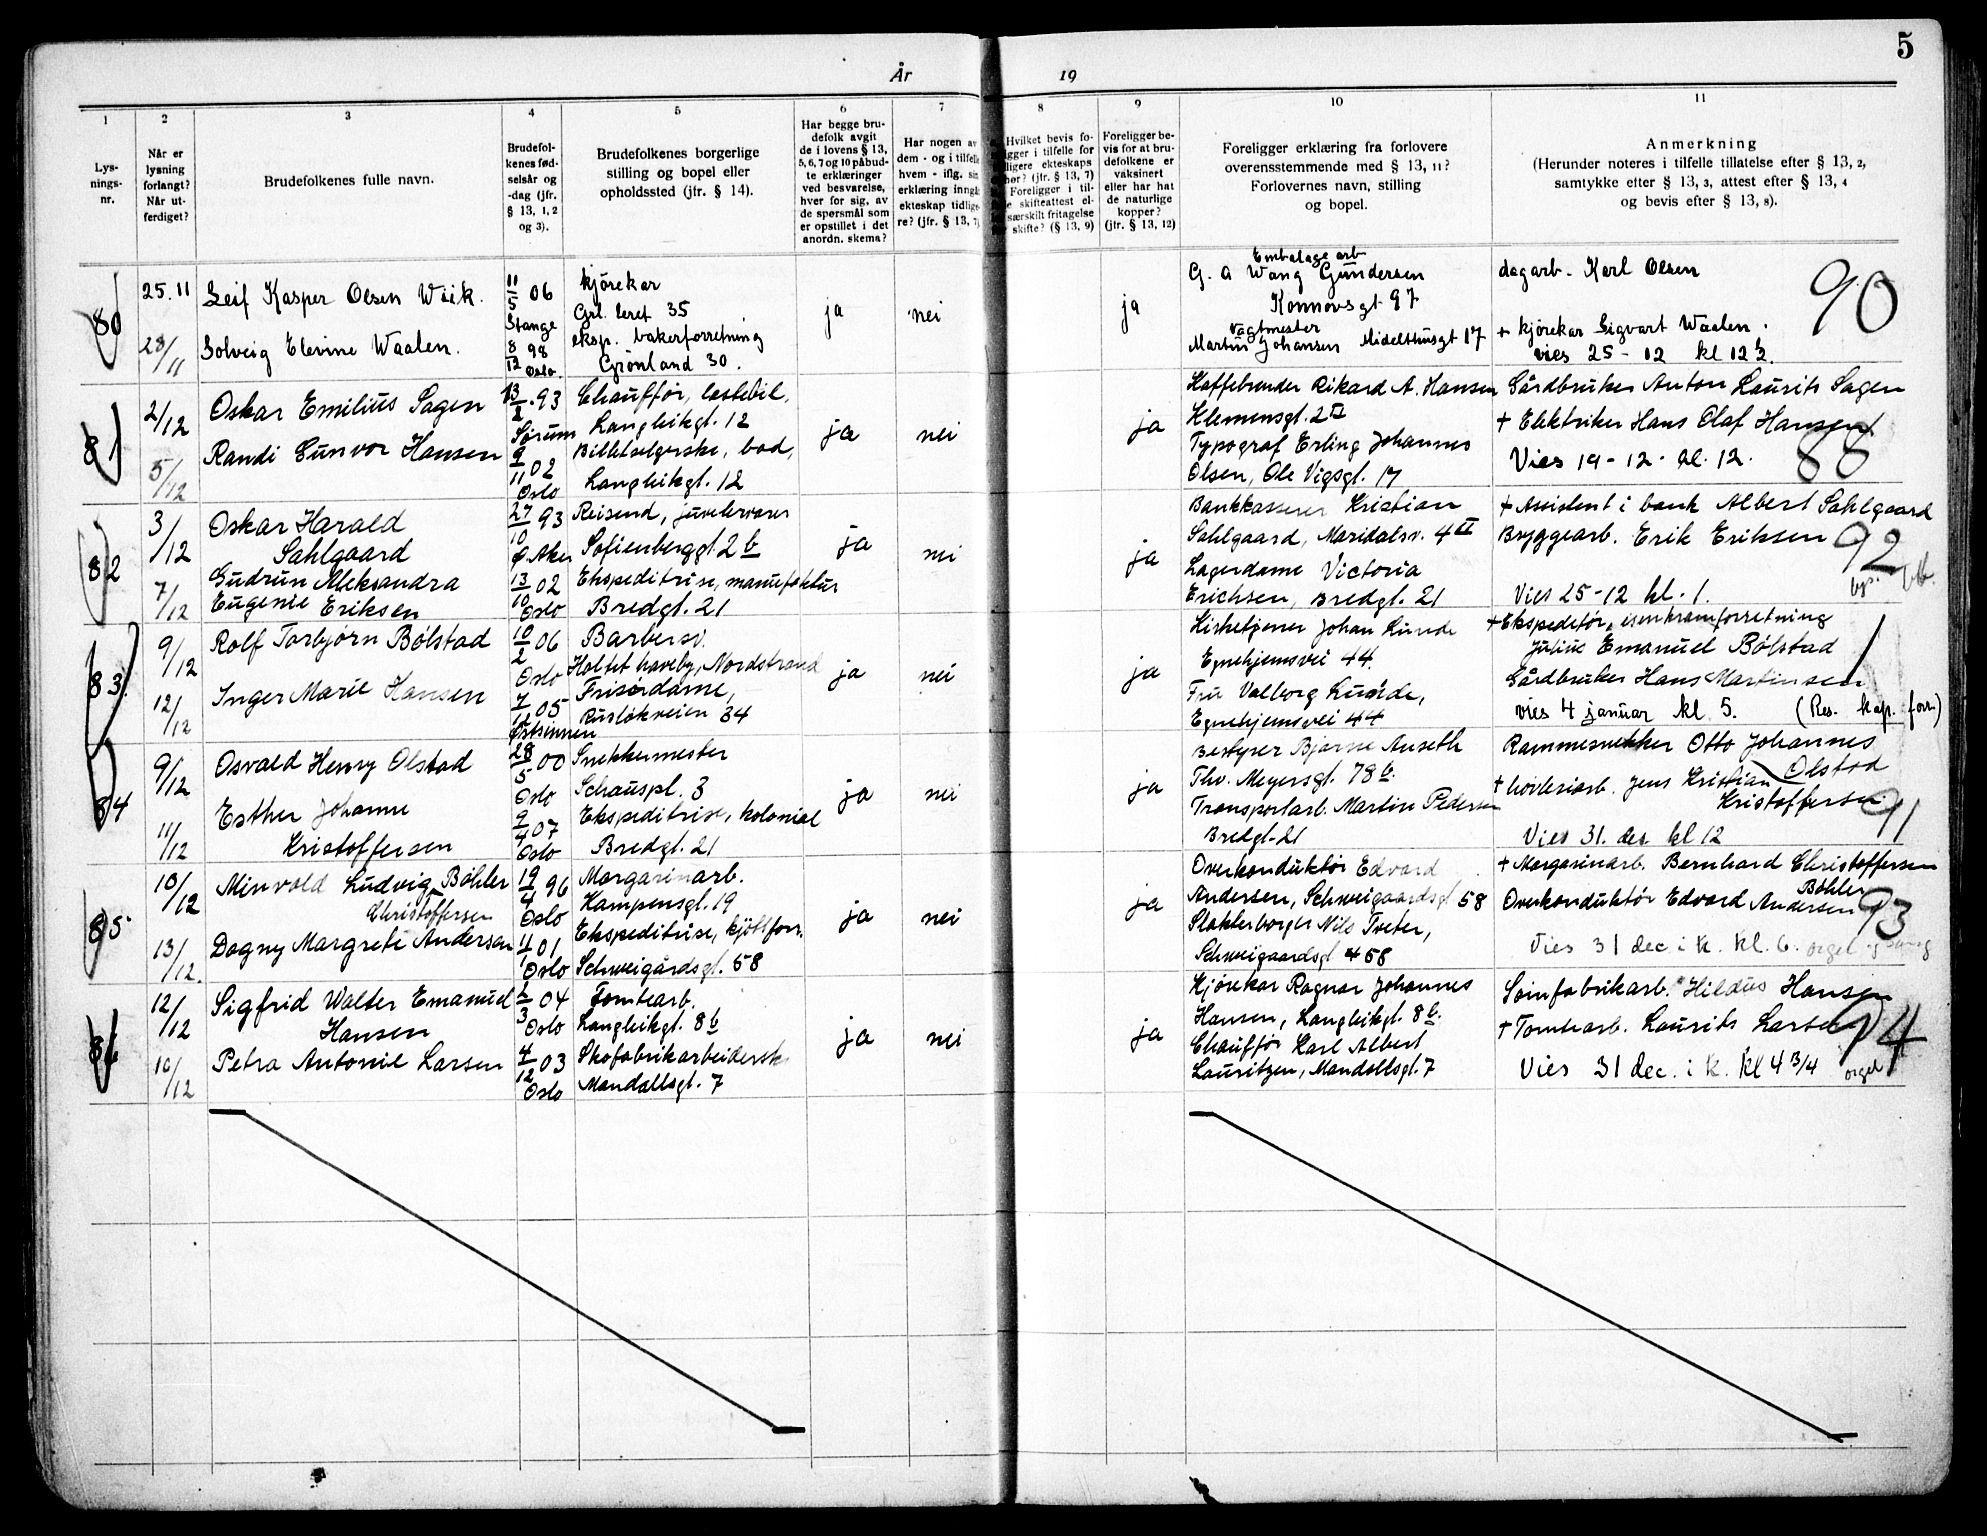 5
År 19
1 2 3 4 5 6 7 8 9 10 11
Lys-
nings-
nr.
Når er
lysning
forlangt?
Når ut-
ferdiget?
Brudefolkenes fulle navn.
Brudefol-
kenes fød-
selsår og
-dag (jfr.
§ 13, 1, 2
og 3).
Brudefolkenes borgerlige
stilling og bopel eller
opholdssted (jfr. § 14).
Har begge bru-
defolk avgit
de i lovens § 13,
5, 6, 7 og 10 påbud-
te erklæringer
ved besvarelse,
hver for sig, av
de spørsmål som
er opstillet i det
anordn. skema?
Har nogen av
dem - og i tilfelle
hvem - iflg. sin
erklæring inngå
ekteskap tidlige
re? (jfr. § 13, 7)
Hvilket bevis fo-
ligger i tilfelle for
ligere ekteskaps
hør? (§ 13, 7)
Foreligger i til-
le skifteattest el-
særskilt fritagelse
skifte? (§ 13, 9)
Foreligger be-
vis for at bru-
defolkene er
vaksinert
eller har hat
de naturlige
kopper?
(jfr. § 13, 12)
Foreligger erklæring fra forlovere
overensstemmende med § 13, 11?
Forlovernes navn, stilling
og bopel.
Anmerkning
(Herunder noteres i tilfelle tillatelse efter § 13, 2,
samtykke efter § 13, 3, attest efter § 13, 4
og bevis efter § 13, 8).
80
25.11
28/11
Leif Kasper Olsen Wiik.
Solveig Elevine Waalen.
11/5 06
Stange
8/12 98
Oslo.
kjørekar
Grl. leret 35
eksp. bakerforretning
Grønland 30.
ja
nei
ja
Embalage arb
G. A Wang Gundersen
Konnovsgt 97
Vagtmester
Martin Johansen Midelthusgt 17
dagarb. Karl Olsen
+ kjørekar Sigvart Waalen.
vies 25-12 kl 12½.
90
81
2/12
5/12
Oskar Emilius Sagen
Randi Gunvor Hansen
13/ 93
Sørum
9/11 02
Oslo
Chauffør, lastebil,
Langleikgt. 12
Billetselgerske, bad,
Langleikgt. 12
ja
nei
ja
Kaffebrender Rikard A. Hansen
Klemensgt. 2 II
Typograf Erling Johannes
Olsen, Ole Vigsgt. 17
Gårdbruker Anton Laurits Sagen
+ Elektriker Hans Olaf Hansen
Vies 19-12- kl. 12.
88
82
3/12
7/12
Oskar Harald
Sahlgaard
Gudrun Aleksandra
Eugenie Eriksen
27/10 93
Ø Aker
13/10 02
Oslo
Reisend, juvelervarer
Sofienberggt. 2 b
Ekspeditrise, manufaktur
Bredgt. 21
ja
nei
ja
Bankkasserer Kristian
Sahlgaard, Maridalsv. 4 II
Lagerdame Victoria
Erichsen, Bredgt. 21
+ Assistent i bank Albert Sahlgaard
Bryggearb. Erik Eriksen
Vies 25-12 kl. 1.
92
83
9/12
12/12
Rolf Torbjørn Bølstad
Inger Marie Hansen
10/2 06
Oslo
7/12 05
Østsinnen
Barbersv.
Holtet haveby, Nordstrand
Frisørdame,
Ruseløkveien 34
ja
nei
ja
Kirketjener Johan Lunde
Egnehjemsvei 44.
Fru Valborg Lunde,
Egnehjemsvei 44
+ Ekspeditør, isenkramforretning
Julius Emanuel Bølstad
Gårdbruker Hans Martinsen
vies 4 januar kl 5. (Res. kap. forr.)
1
84
9/12
11/12
Osvald Henry Olstad
Esther Johanne
Kristoffersen
28/5 00
Oslo
9/4 07
Oslo
Snekkermester
Schouspl. 3
Ekspeditrise, kolonial
Bredgt. 21
ja
nei
ja
Bestyrer Bjarne Anseth
Thv. Meyersgt. 78 b.
Transportarb. Martin Pedersen
Bredgt. 21
Rammesnekker Otto Johannes
Olstad
+ høvleriarb. Jens Kristian
Kristoffersen
Vies 31. des kl 12
91
85
10/12
13/12.
Minvald Ludvig Bøhler
Christoffersen
Dagny Margrete Andersen
19/4 96
Oslo
11/ 01
Oslo
Margarinarb.
Kampensgt. 19
Ekspeditrise, kjøttforr.
Schweigårdsgt. 58
ja
nei
ja
Overkonduktør Edvard
Andersen, Schweigaardsgt 58
Slakterborger Nils Tveter,
Schweigaardsgt 58
+ Margarinarb. Bernhard Christoffersen
Bøhler
Overkonduktør Edvard Andersen
Vies 31 dec i k. kl. 6. orgel og sang
93
86
12/12
16/12
Sigfrid Walter Emanuel
Hansen
Petra Antonie Larsen
2/3 04
Oslo
4/12 03
Oslo
Tomtearb.
Langleikgt. 8 b
Skofabrikarbeiderske
Mandallsgt. 7
ja
nei
ja
Kjørekar Ragnar Johannes
Hansen, Langleikgt. 8 b.
Chauffør Karl Albert
Lauritzen, Mandallsgt. 7
Sømfabrikarb. Hildus Hansen
+ Tomtearb. Laurits Larsen
Vies 31 dec. i k. kl 4 3/4 orgel
94